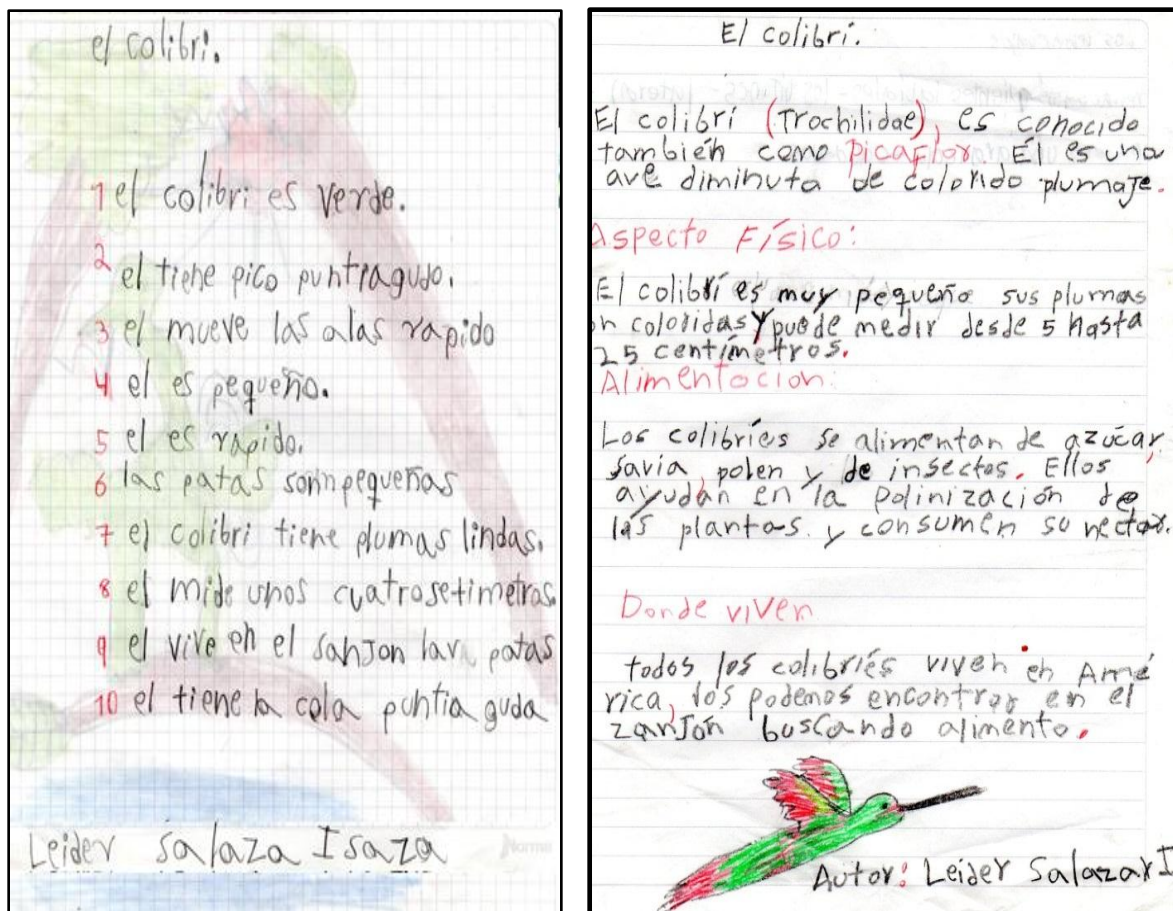 el colibri.
1 el colibri es verde.
2 el tiene pico puntiagudo.
3 el mueve las alas rapido
4 el es pequeño.
5 el es rapido.
6 las patas sonnpequeñas
7 el colibri tiene plumas lindas.
8 el mide unos cuatrosetimetros.
9 el vive en el sanjon lava patas
10 el tiene la cola puntia guda
Leider Salaza Isaza
Norma
El colibrí.
El colibrí (Trochilidae), es conocido
también como picaflor. Él es una
ave diminuta de colorido plumaje.
Aspecto Físico:
El colibrí es muy pequeño sus plumas
on coloridas y puede medir desde 5 hasta
25 centímetros.
Alimentacion:
Los colibríes se alimentan de azúcar,
savia, polen y de insectos. Ellos
ayudan en la polinización de
las plantas. y consumen su nectar.
Donde viven
todos los colibriés viven en Amé
rica, los podemos encontrar en el
zanjón buscando alimento.
Autor: Leider Salazar I